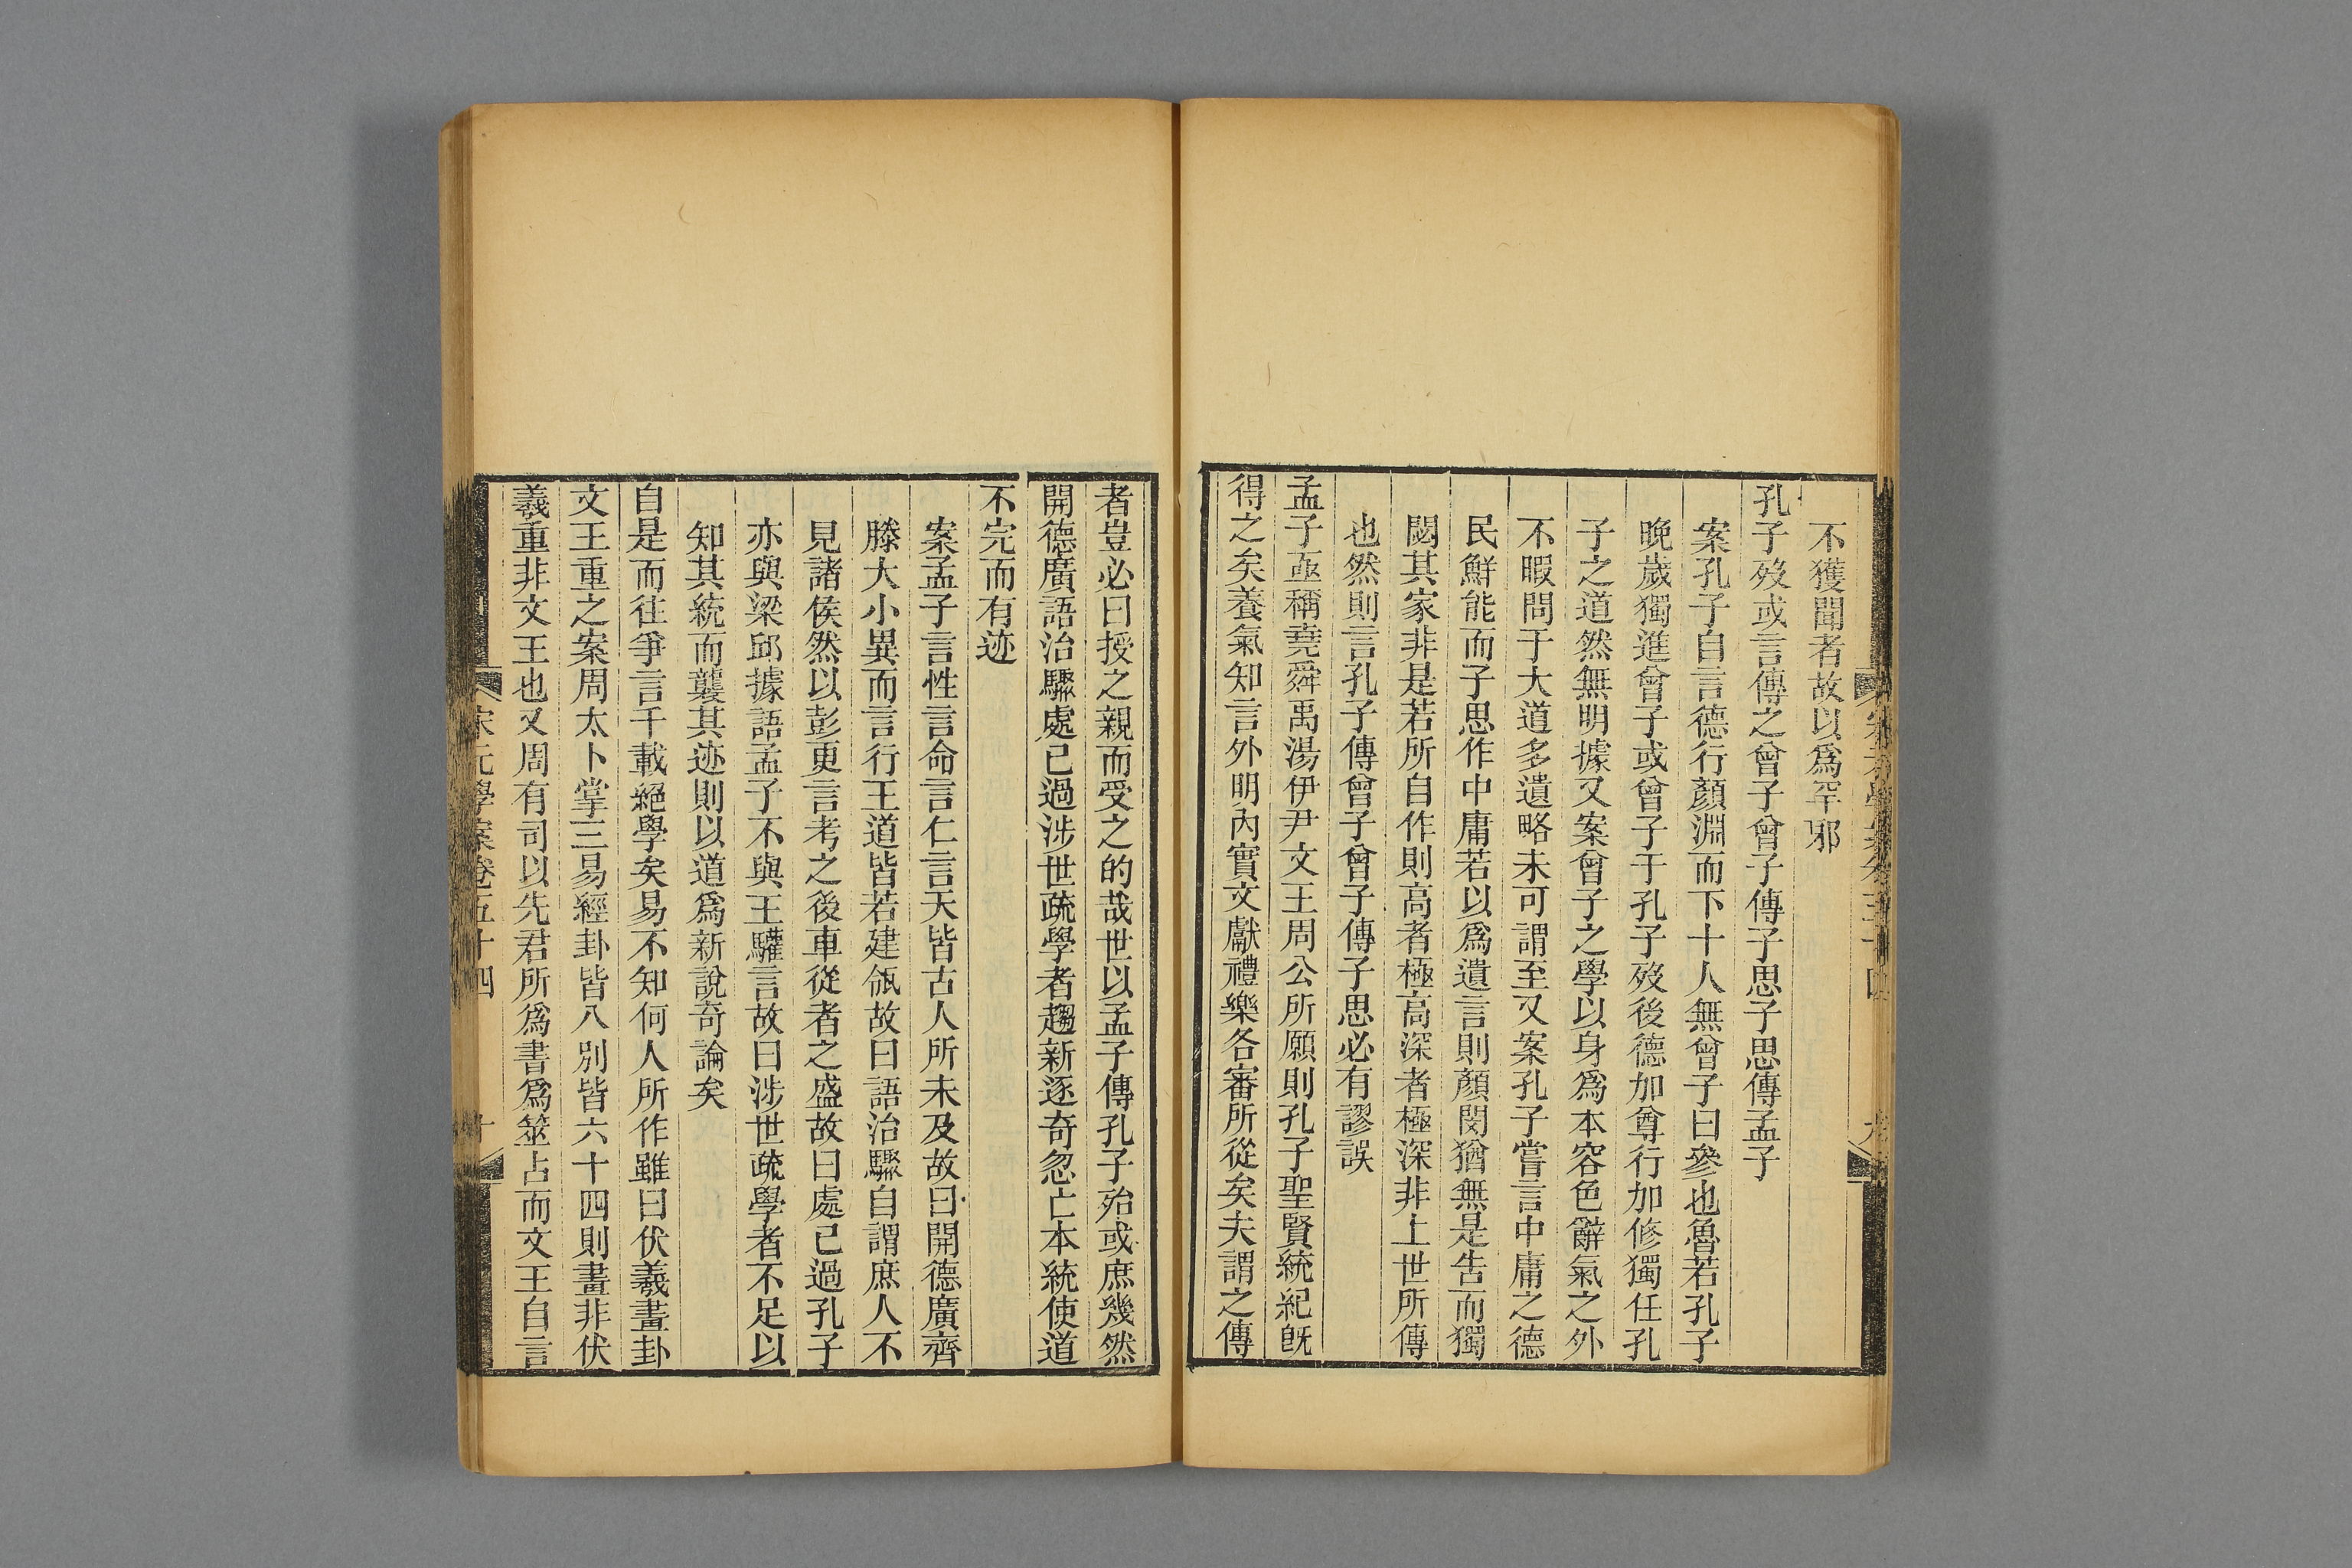 宋元學案卷五十四
九
不獲聞者故以爲罕邪
孔子歿或言傳之曾子曾子傳子思子思傳孟子
案孔子自言德行顏淵而下十人無曾子曰參也魯若孔子
晚歲獨進曾子或曾子于孔子歿後德加尊行加修獨任孔
子之道然無明據又案曾子之學以身爲本容色辭氣之外
不暇問于大道多遺略未可謂至又案孔子嘗言中庸之德
民鮮能而子思作中庸若以爲遺言則顏閔猶無是告而獨
閟其家非是若所自作則高者極高深者極深非上世所傳
也然則言孔子傳曾子曾子傳子思必有謬誤
孟子亟稱堯舜禹湯伊尹文王周公所願則孔子聖賢統紀旣
得之矣養氣知言外明內實文獻禮樂各審所從矣夫謂之傳
者豈必曰授之親而受之的哉世以孟子傳孔子殆或庶幾然
開德廣語治驟處己過涉世疏學者趨新逐奇忽亡本統使道
不完而有迹
案孟子言性言命言仁言天皆古人所未及故曰開德廣齊
滕大小異而言行王道皆若建瓴故曰語治驟自謂庶人不
見諸侯然以彭更言考之後車從者之盛故曰處己過孔子
亦與梁邱據語孟子不與王驩言故曰涉世疏學者不足以
知其統而襲其迹則以道爲新說奇論矣
自是而往爭言千載絕學矣易不知何人所作雖曰伏羲畫卦
文王重之案周太卜掌三易經卦皆八別皆六十四則畫非伏
羲重非文王也又周有司以先君所爲書爲筮占而文王自言
宋元學案卷五十四
十